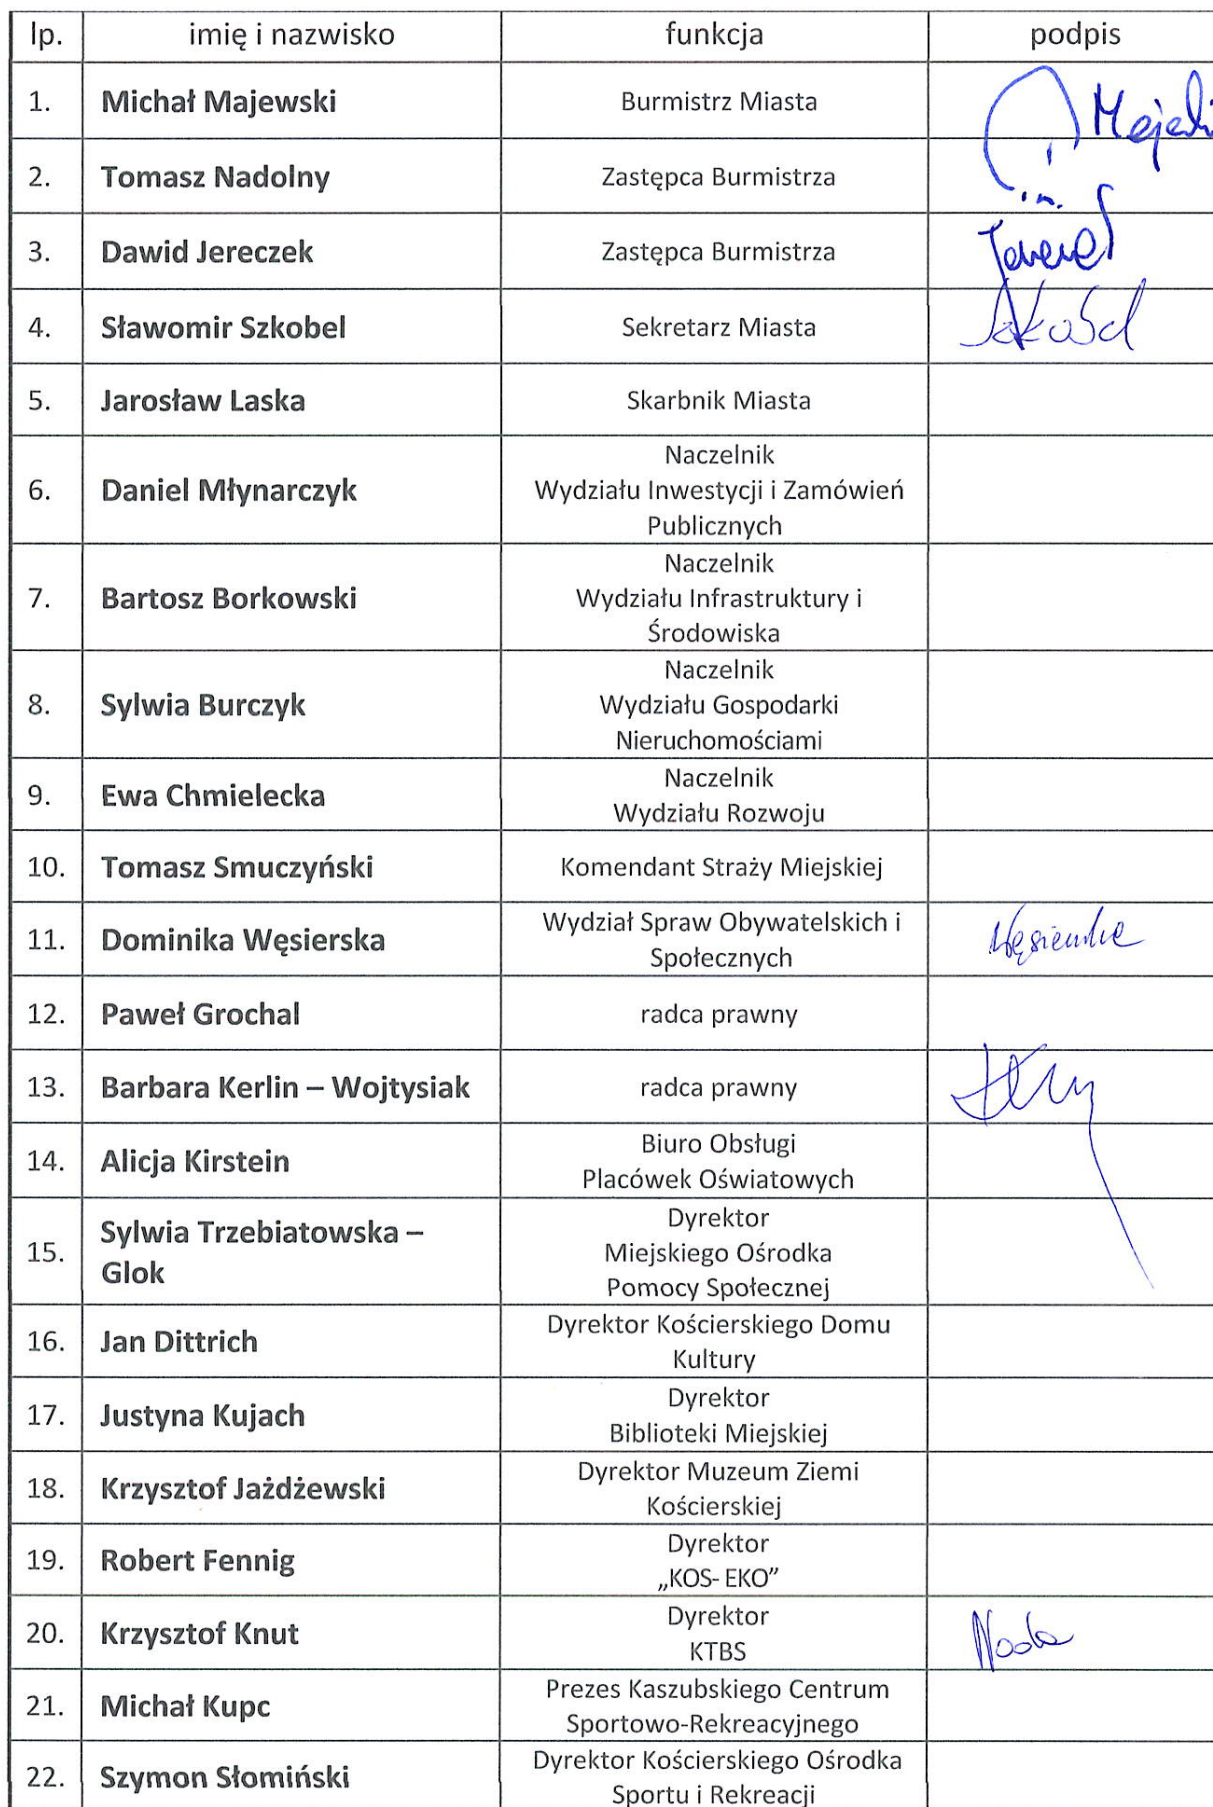 lp. imię i nazwisko funkcja podpis
1. Michał Majewski Burmistrz Miasta
2. Tomasz Nadolny Zastępca Burmistrza
3. Dawid Jereczek Zastępca Burmistrza
4. Sławomir Szkobel Sekretarz Miasta
5. Jarosław Laska Skarbnik Miasta
6. Daniel Młynarczyk Naczelnik
Wydziału Inwestycji i Zamówień
Publicznych
7. Bartosz Borkowski Naczelnik
Wydziału Infrastruktury i
Środowiska
8. Sylwia Burczyk Naczelnik
Wydziału Gospodarki
Nieruchomościami
9. Ewa Chmielecka Naczelnik
Wydziału Rozwoju
10. Tomasz Smuczyński Komendant Straży Miejskiej
11. Dominika Węsierska Wydział Spraw Obywatelskich i
Społecznych
12. Paweł Grochal radca prawny
13. Barbara Kerlin – Wojtysiak radca prawny
14. Alicja Kirstein Biuro Obsługi
Placówek Oświatowych
15. Sylwia Trzebiatowska –
Glok
Dyrektor
Miejskiego Ośrodka
Pomocy Społecznej
16. Jan Dittrich Dyrektor Kościerskiego Domu
Kultury
17. Justyna Kujach Dyrektor
Biblioteki Miejskiej
18. Krzysztof Jażdżewski Dyrektor Muzeum Ziemi
Kościerskiej
19. Robert Fennig Dyrektor
„KOS- EKO”
20. Krzysztof Knut Dyrektor
KTBS
21. Michał Kupc Prezes Kaszubskiego Centrum
Sportowo-Rekreacyjnego
22. Szymon Słomiński Dyrektor Kościerskiego Ośrodka
Sportu i Rekreacji